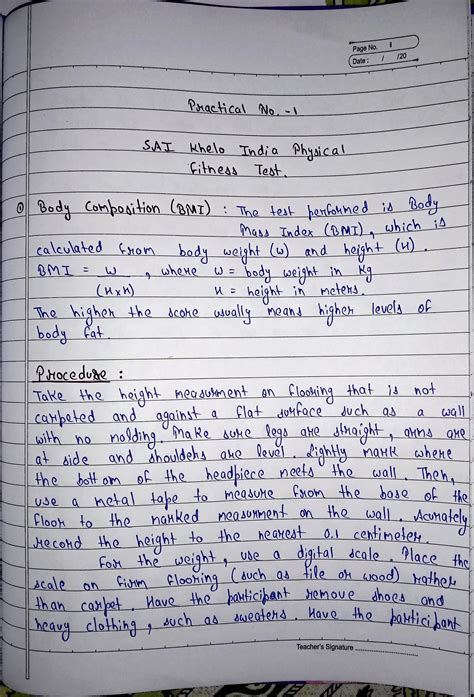 Page No. 1
Date : / /20
Practical No. -1
SAI Khelo India Physical
Fitness Test.
① Body Composition (BMI) : The test performed is Body
Mass Index (BMI), which is
calculated from body weight (w) and height (H).
BMI = w , where w = body weight in Kg
(HxH) H = height in meters.
The higher the score usually means higher levels of
body fat.
Procedure :
Take the height measurment on flooring that is not
carpeted and against a flat surface such as a wall
with no molding. Make sure legs are straight, arms are
at side and shoulders are level. Lightly mark where
the bottom of the headpiece meets the wall. Then,
use a metal tape to measure from the base of the
floor to the marked measurment on the wall. Acurately
record the height to the nearest 0.1 centimeter.
For the weight, use a digital scale. Place the
scale on firm flooring (such as tile or wood) rather
than carpet. Have the participant remove shoes and
heavy clothing, such as sweaters. Have the participant
Teacher's Signature